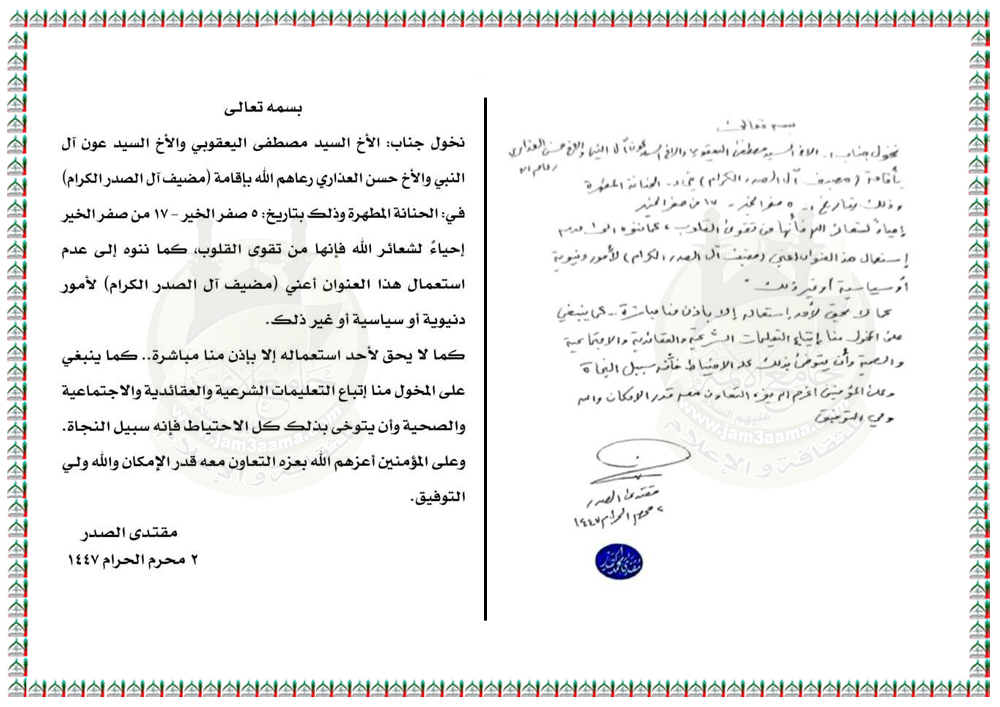 بسمه تعالى
نخول جناب: الأخ السيد مصطفى اليعقوبي والأخ السيد عون آل النبي والأخ حسن العذاري
رعاهم الله
بأقامة (مضيف آل الصدر الكرام) في: الحنانة المطهرة
وذلك بتاريخ: ٥ صفر الخير - ١٧ من صفر الخير
إحياءً لشعائر الله فأنها من تقوى القلوب، كما ننوه الى عدم
إستعمال هذا العنوان أعني (مضيف آل الصدر الكرام) لأمور دنيوية
أو سياسية أو غير ذلك
كما لا يحق لأحد إستعماله إلا بأذن منا مباشرة.. كما ينبغي
على المخول منا إتباع التعليمات الشرعية والعقائدية والاجتماعية
والصحية وأن يتوخى بذلك كل الاحتياط فأنه سبيل النجاة
وعلى المؤمنين أعزهم الله بعزه التعاون معه قدر الامكان والله
ولي التوفيق
مقتدى الصدر
٢ محرم الحرام ١٤٤٧
بسمه تعالى
نخول جناب: الأخ السيد مصطفى اليعقوبي والأخ السيد عون آل
النبي والأخ حسن العذاري رعاهم الله بإقامة (مضيف آل الصدر الكرام)
في: الحنانة المطهرة وذلك بتاريخ: ٥ صفر الخير – ١٧ من صفر الخير
إحياءً لشعائر الله فإنها من تقوى القلوب، كما ننوه إلى عدم
استعمال هذا العنوان أعني (مضيف آل الصدر الكرام) لأمور
دنيوية أو سياسية أو غير ذلك.
كما لا يحق لأحد استعماله إلا بإذن منا مباشرة.. كما ينبغي
على المخول منا إتباع التعليمات الشرعية والعقائدية والاجتماعية
والصحية وأن يتوخى بذلك كل الاحتياط فإنه سبيل النجاة.
وعلى المؤمنين أعزهم الله بعزه التعاون معه قدر الإمكان والله ولي
التوفيق.
مقتدى الصدر
٢ محرم الحرام ١٤٤٧
www.jam3aama.com
الثقافة والإعلام